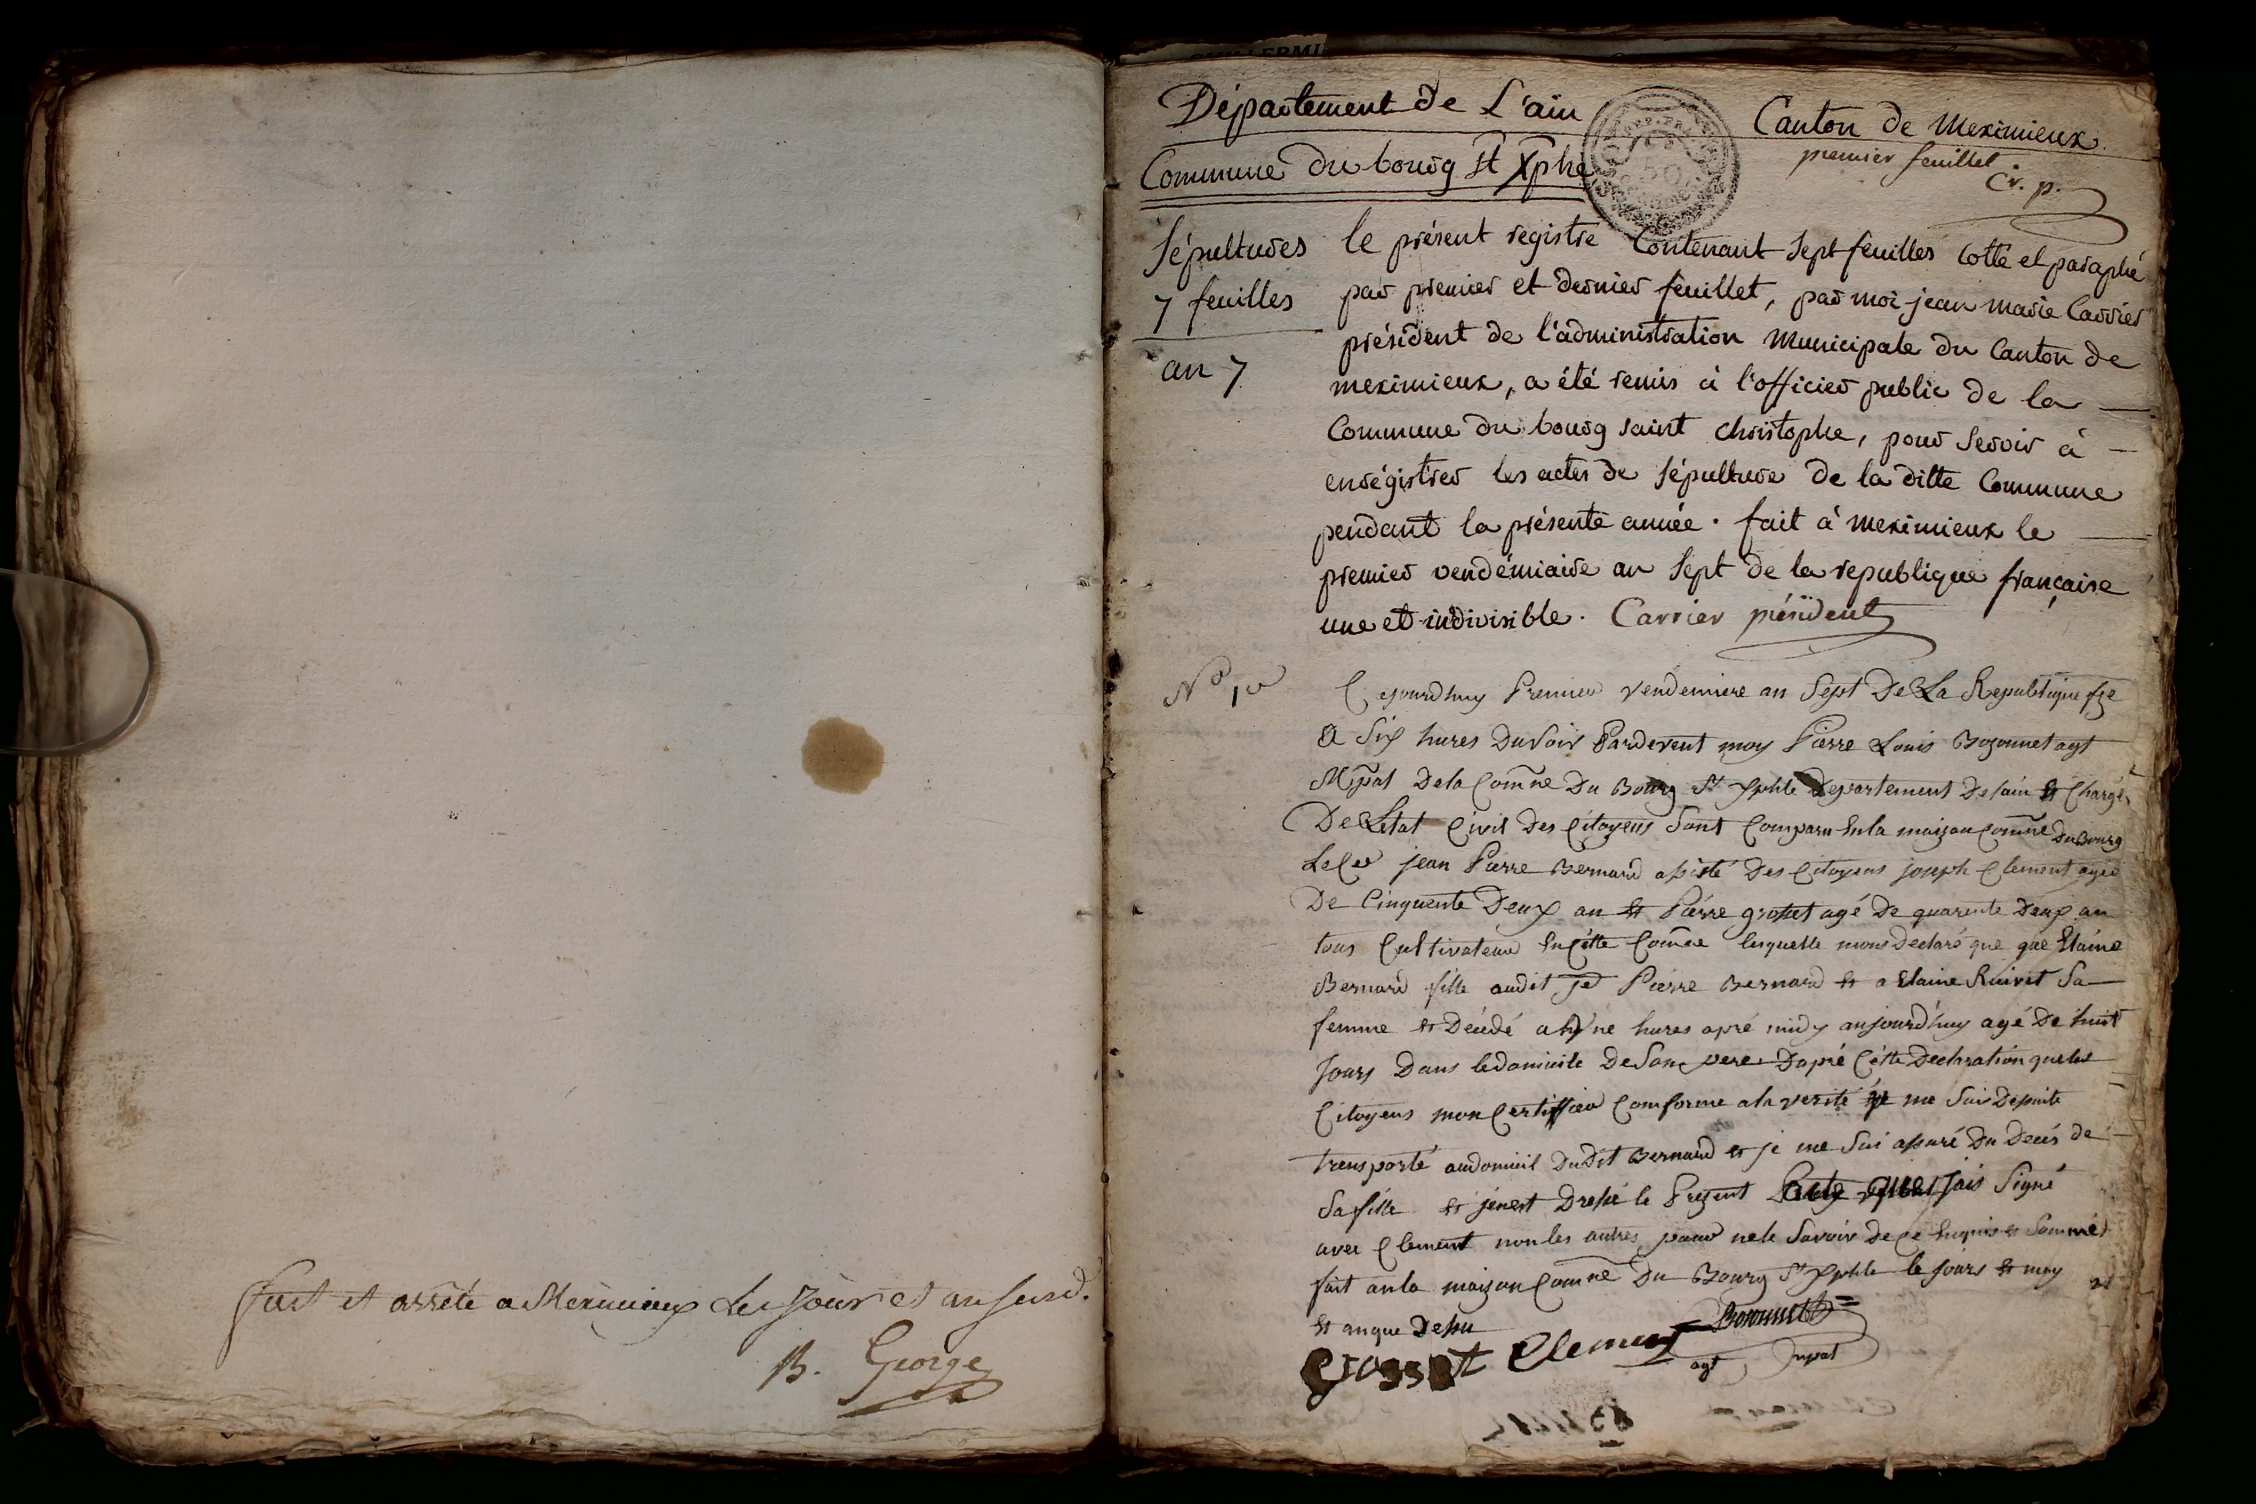 fait et arrêté a Meximieux Les Jour et an susd.
B. George
Département de L'ain
Canton de Meximieux
Commune du bourg st Xphe
premier feuillet
Cr. p.
Sépultures
7 feuilles
an 7
le présent registre Contenant Sept feuilles cotté et paraphé
par premier et dernier feuillet, par moi jean marie Carrier
président de l'administration Municipale du Canton de
meximieux, a été remis à l'officier public de la
Commune du bourg saint christophe, pour servir à
enrégistrer les actes de sépulture de la ditte Commune
pendant la présente année. fait à meximieux le
premier vendémiaire an Sept de la republique française
une et indivisible. Carrier président
No 1er
Cejourdhuy Premier vendemiere an Sept De La Republique fse
a Six hures Du soir Pardevent moy Pierre Louis Bozonnet agt
Mpal De la Comne Du Bourg St Xphle Departement De lain et Chargé
De Letat Civil Des Citoyens Sont Comparu En la maison Comne Du Bourg
Le Cen jean Pierre Bernard assisté Des Citoyens joseph Clement agé
De Cinquente Deux an et Pierre grosset agé De quarente Deux an
tous Cultivateur En Cette Comne lesquelle mons Declaré que que Elaine
Bernard fille audit jed Pierre Bernard et a Elaine Ruivet Sa
femme et Décédé a hune hures apré midy aujourd'huy agé De huit
Jours Dans le domicile De Son pere Dapré Cette Declaration que les
Citoyens mon Certiffier Comforme a la verité je me Suis De suite
transporté au domicil Du Dit Bernard et je me Sui assuré Du Deces de
Sa fille et jenest Dressé le Present acte que jais Signé
avec Clement non les autres pour ne le Savoir de Ce Enquis et Sommé
fait an la maison Comne Du Bourg St Xphle le jours et moy
et an que Desu
Bozonnet
agt mpal
Grosset Clement